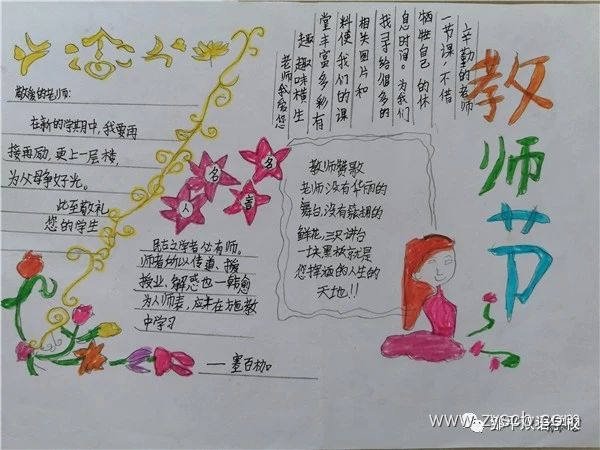 教师节
辛勤的老师
一节课,不惜
牺牲自己的休
息时间。为我们
找寻给很多的
相关图片和
料使我们的课
堂丰富多彩有
趣趣味横生
老师我爱您
敬爱的老师:
在新的学期中,我要再
接再励,更上一层楼,
为父母争好光。
此至敬礼
您的学生
名
人
名
言
古之学者必有师。
师者所以传道、授
授业、解惑也—韩愈
为人师表,应本在 教
中学习
——墨百
教师赞歌
老师没有华丽的
舞台,没有簇拥的
鲜花,三尺讲台
一块黑板就是
您挥洒的人生的
天地!!
www.zyscb.com